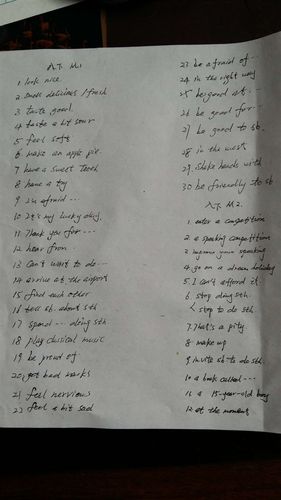 八下 M1
1. look nice
2. smell delicious / fresh
3. taste good.
4. taste a bit sour
5 feel soft
6 make an apple pie
7 have a sweet tooth
8 have a try
9 I'm afraid ...
10 It's my lucky day.
11 Thank you for ...
12 hear from
13 can't wait to do ...
14 arrive at the airport
15 find each other
16 tell sb. about sth
17 spend ... doing sth
18 play classical music
19 be proud of
20. get bad marks
21 feel nervious
22 feel a bit sad
23 be afraid of ...
24 in the right way
25 be good at ...
26 be good for ...
27 be good to sb.
28 in the west
29. shake hands with
30 be friendly to sb
八下 M2.
1. enter a competition
2. a speaking competition
3. improve your speaking
4. go on a dream holiday
5. I can't afford it
6 stop doing sth
< stop to do sth
7. That's a pity
8 make up
9. invite sb to do sth.
10 a book called ...
11 a 15-year-old boy
12. at the moment